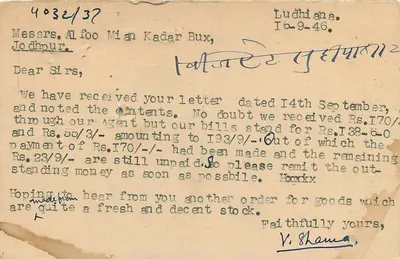 4032/37
Ludhiana.
Io-9-46.
Messrs. Alfoo Mian Kadar Bux,
Jodhpur.
Dear Sirs,
We have received your letter dated I4th September,
and noted the contents. No doubt we received Rs.I70/-
through our Agent but our bills stand for Rs.I38-6-0
and Rs.55/3/- amounting to I93/9/- Out of which the
payment of Rs.I70/-/- had been made and the remaining
Rs.23/9/- are still unpaid.So please remit the out-
standing money as soon as possbile.
Hoping to hear from you another order for goods which
are quite a fresh and decent stock.
Faithfully yours,
V. Sharma.